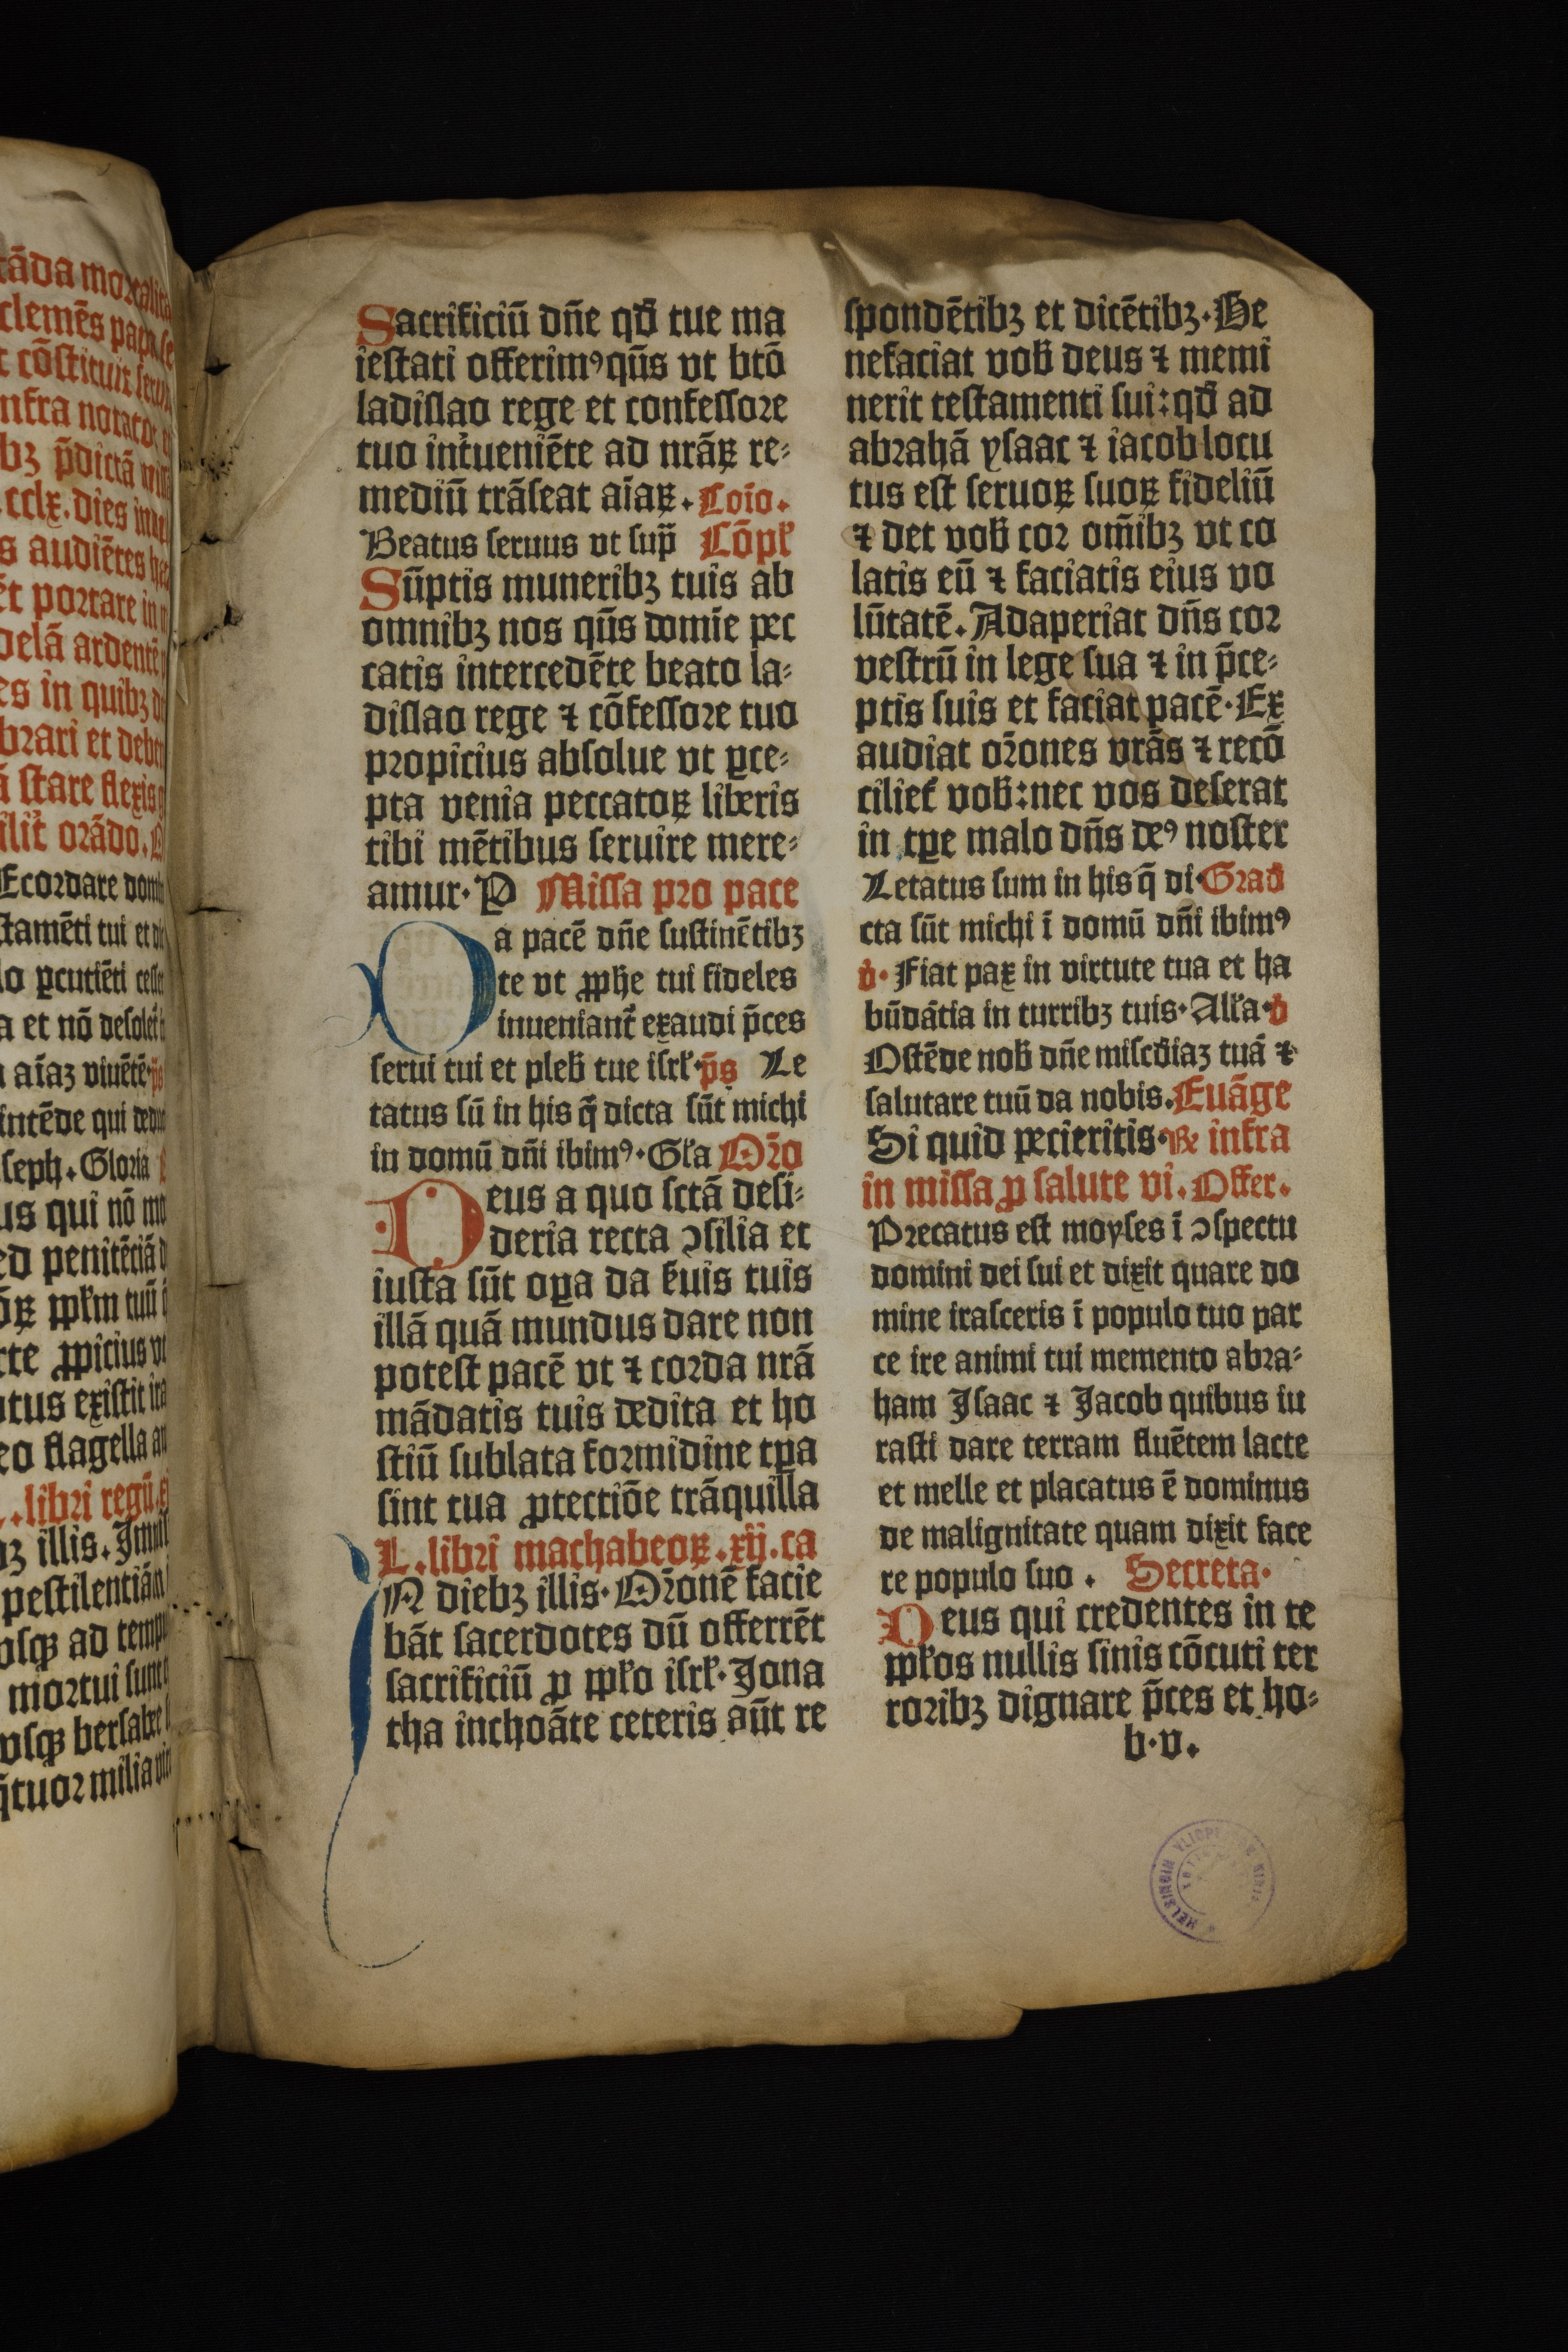 tāda moꝛtalita
clemēs papa se
t cōstituit
nfra notato
bꝫ p̄dictā
cclx. dies
s audiētes
ēt poꝛtare in
delā ardentē
es in quibꝫ
bꝛari et deben
ā stare flexis
oꝛādo.
Ecoꝛdare
stamēti tui et
lo ꝑcutiēti
a et nō desolet
aīaꝫ viuētē
intēde qui
seph. Gloꝛia
us qui nō
ed penitēciā
tuū
rte ꝓpicius
tus existit
eo flagella
libꝛi regū
illis.
pestilentiā
osqꝫ ad
moꝛtui sunt
vsqꝫ bersabee
q̄tuoꝛ milia
Sacrificiū dñe qđ tue ma
iestati offerimꝰ qūs vt btō
ladislao rege et confessoꝛe
tuo int̾ueniēte ad nrāꝝ re⸗
mediū trāseat aīaꝝ. Coīo.
Beatus seruus vt sup̄ Cōpl̾
Sūptis muneribꝫ tuis ab
omnibꝫ nos qūs domīe pec
catis intercedēte beato la⸗
dislao rege ⁊ cōfessoꝛe tuo
pꝛopicius absolue vt ꝑce⸗
pta venia peccatoꝝ liberis
tibi mētibus seruire mere⸗
amur. P Missa pꝛo pace
Da pacē dñe sustinētibꝫ
te vt ꝓphe tui fideles
inueniant̾ exaudi p̄ces
serui tui et pleb̾ tue isrl̾. p̄s Le
tatus sū in his q̄ dicta sūt michi
in domū dñi ibimꝰ. Gl̾a Oꝛ̄o
Deus a quo sctā desi⸗
deria recta ↄsilia et
iusta sūt oꝑa da ẜuis tuis
illā quā mundus dare non
potest pacē vt ⁊ coꝛda nrā
mādatis tuis dedita et ho
stiū sublata foꝛmidine tꝑa
sint tua ꝓtectiōe trāquilla
L. libꝛi machabeoꝝ. xij. ca
IN diebꝫ illis. Oꝛ̄onē facie
bāt sacerdotes dū offerrēt
sacrificiū ꝓ ppl̾o isrl̾. Jona
tha inchoāte ceteris aūt re
spondētibꝫ et dicētibꝫ. Be
nefaciat vob̾ deus ⁊ memi
nerit testamenti sui: qđ ad
abꝛahā ysaac ⁊ iacob locu
tus est seruoꝝ suoꝝ fideliū
⁊ det vob̾ coꝛ om̄ibꝫ vt co
latis eū ⁊ faciatis eius vo
lūtatē. Adaperiat dñs coꝛ
vestrū in lege sua ⁊ in p̄ce⸗
ptis suis et faciat pacē. Ex
audiat oꝛ̄ones vrās ⁊ recō
ciliet̾ vob̾: nec vos deserat
in tꝑe malo dñs deꝰ noster
Letatus sum in his q̄ di Grad̾
cta sūt michi ī domū dñi ibimꝰ
v̾. Fiat pax in virtute tua et ha
būdātia in turribꝫ tuis. All̾a. v̾
Ostēde nob̾ dñe mis̄cđiaꝫ tuā ⁊
salutare tuū da nobis. Euāge
Si quid pecieritis. Rͤ infra
in missa ꝓ salute vi. Offer.
Pꝛecatus est moyses ī ↄspectu
domini dei sui et dixit quare do
mine irasceris ī populo tuo par
ce ire animi tui memento abꝛa⸗
ham Jsaac ⁊ Jacob quibus iu
rasti dare terram fluētem lacte
et melle et placatus ē dominus
de malignitate quam dixit face
re populo suo. Secreta.
Deus qui credentes in te
ppl̾os nullis sinis cōcuti ter
roꝛibꝫ dignare p̄ces et ho⸗
b. v.